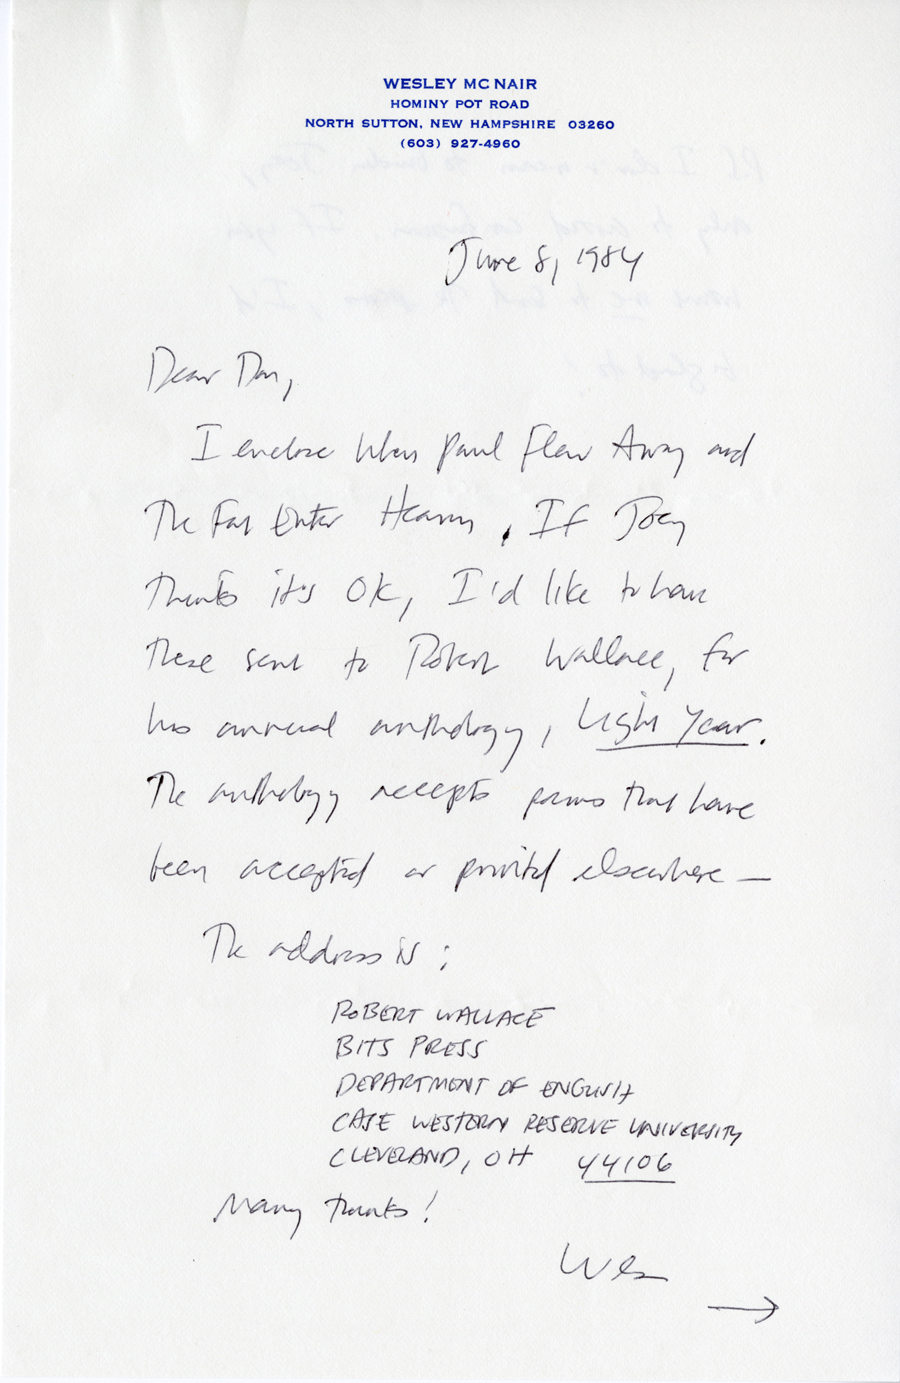 WESLEY MC NAIR
HOMINY POT ROAD
NORTH SUTTON, NEW HAMPSHIRE 03260
(603) 927-4960
June 8, 1984
Dear Don,
I enclose When Paul Flew Away and
The Fat Enter Heaven. If Joey
thinks it's OK, I'd like to have
these sent to Robert Wallace, for
his annual anthology, Light Year.
The anthology accepts poems that have
been accepted or printed elsewhere —
The address is:
ROBERT WALLACE
BITS PRESS
DEPARTMENT OF ENGLISH
CASE WESTERN RESERVE UNIVERSITY
CLEVELAND, OH 44106
Many thanks!
Wes
→